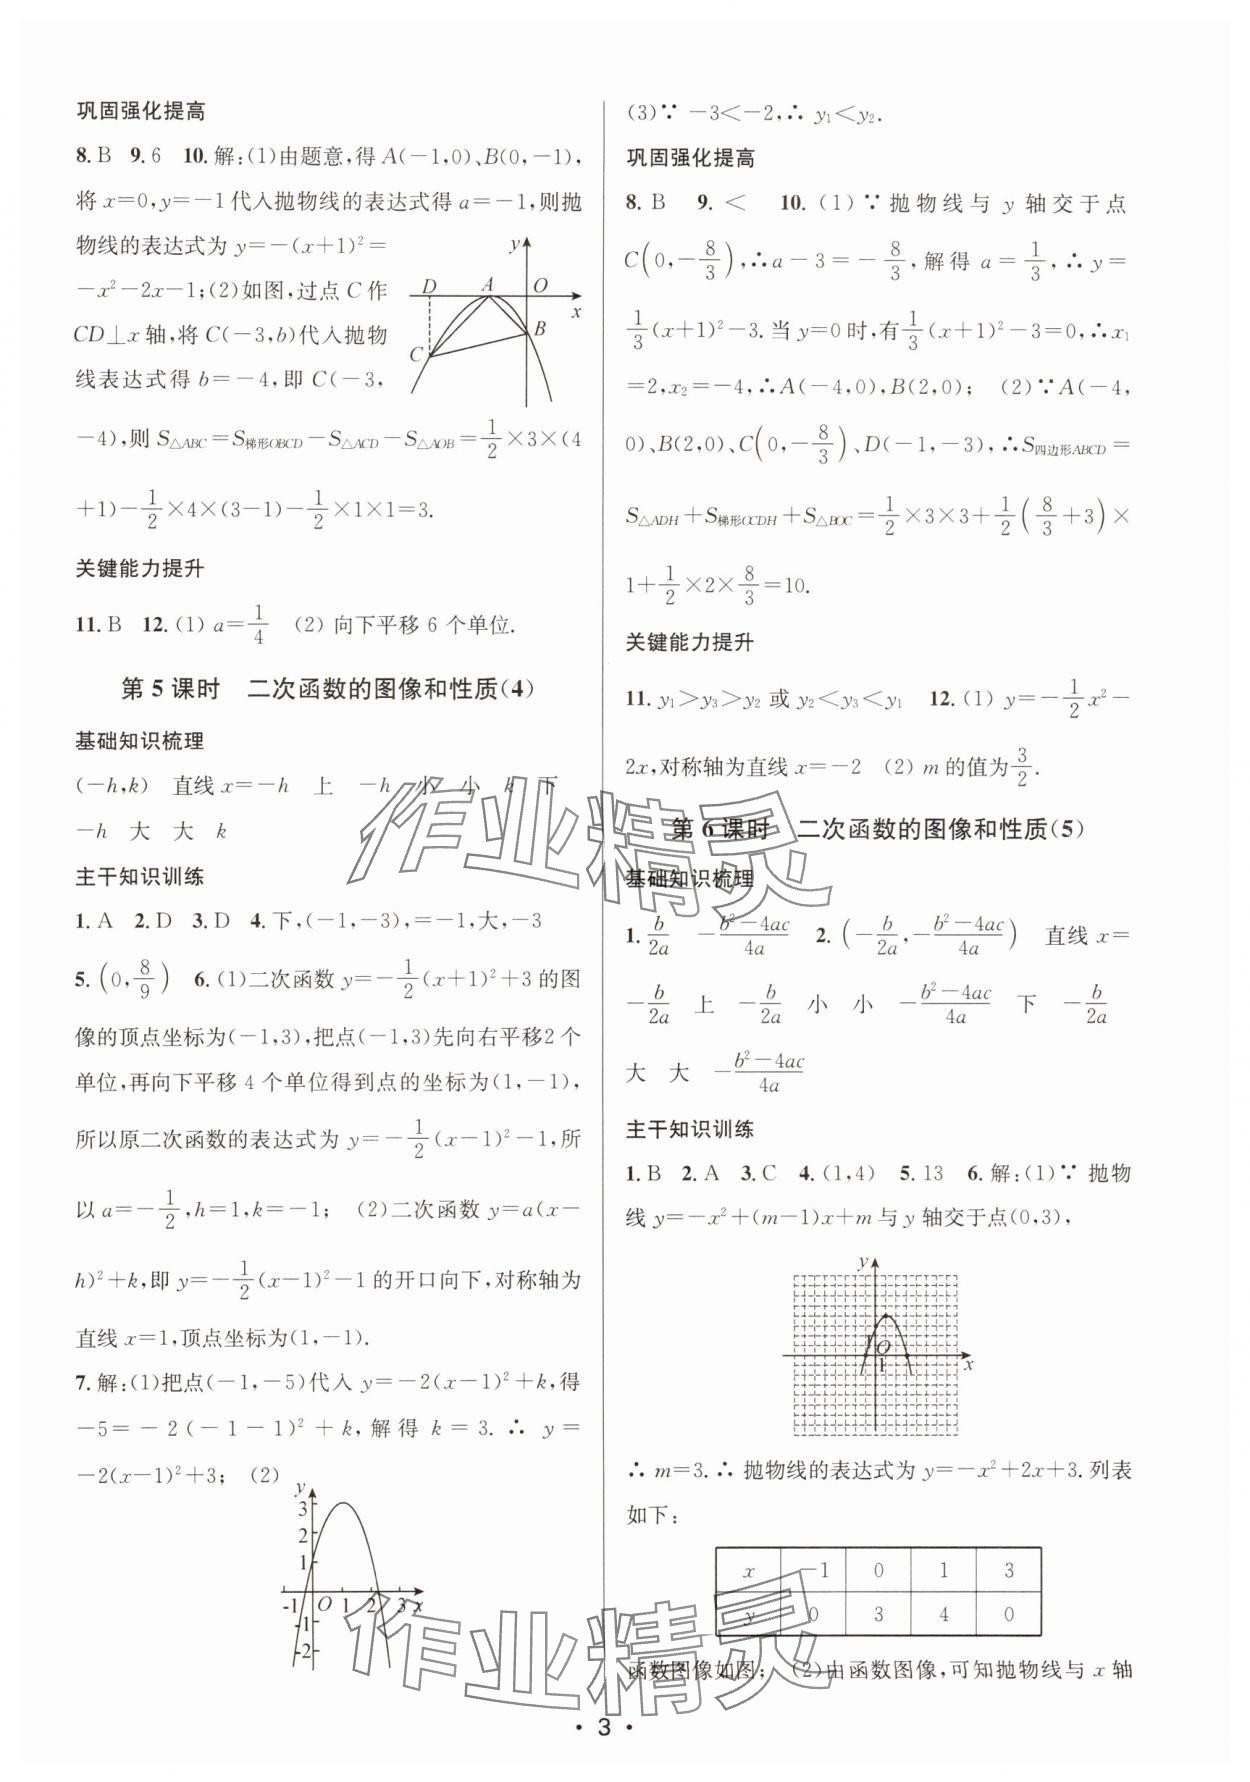 巩固强化提高
8. B  9. 6  10. 解:(1)由题意,得 A(-1,0)、B(0,-1),
将 x=0,y=-1代入抛物线的表达式得 a=-1,则抛
物线的表达式为 y=-(x+1)²=
-x²-2x-1;(2)如图,过点 C 作
CD⊥x 轴,将 C(-3,b)代入抛物
线表达式得 b=-4,即 C(-3,
y D A O x B C
-4),则 S△ABC=S梯形OBCD-S△ACD-S△AOB=1/2×3×(4
+1)-1/2×4×(3-1)-1/2×1×1=3.
关键能力提升
11. B  12. (1) a=1/4  (2) 向下平移 6 个单位.
第 5 课时  二次函数的图像和性质(4)
基础知识梳理
(-h,k)  直线 x=-h  上  -h  小  小  k  下
-h  大  大  k
主干知识训练
1. A  2. D  3. D  4. 下,(-1,-3),=-1,大,-3
5. (0,8/9)  6. (1)二次函数 y=-1/2(x+1)²+3 的图
像的顶点坐标为(-1,3),把点(-1,3)先向右平移2 个
单位,再向下平移 4 个单位得到点的坐标为(1,-1),
所以原二次函数的表达式为 y=-1/2(x-1)²-1,所
以 a=-1/2,h=1,k=-1; (2)二次函数 y=a(x-
h)²+k,即 y=-1/2(x-1)²-1 的开口向下,对称轴为
直线 x=1,顶点坐标为(1,-1).
7. 解:(1)把点(-1,-5)代入 y=-2(x-1)²+k,得
-5=-2(-1-1)²+k,解得 k=3. ∴ y=
-2(x-1)²+3; (2)
y 3 2 1 -1 O 1 2 3 x -1 -2
(3)∵ -3<-2,∴ y₁<y₂.
巩固强化提高
8. B  9. <  10. (1)∵抛物线与 y 轴交于点
C(0,-8/3),∴a-3=-8/3,解得 a=1/3,∴y=
1/3(x+1)²-3. 当 y=0 时,有1/3(x+1)²-3=0,∴x₁
=2,x₂=-4,∴A(-4,0),B(2,0); (2)∵A(-4,
0)、B(2,0)、C(0,-8/3)、D(-1,-3),∴S四边形ABCD=
S△ADH+S梯形OCDH+S△BOC=1/2×3×3+1/2(8/3+3)×
1+1/2×2×8/3=10.
关键能力提升
11. y₁>y₃>y₂ 或 y₂<y₃<y₁  12. (1) y=-1/2x²-
2x,对称轴为直线 x=-2  (2) m 的值为3/2.
第 6 课时  二次函数的图像和性质(5)
基础知识梳理
1. b/2a  -b²-4ac/4a  2. (-b/2a,-b²-4ac/4a)  直线 x=
-b/2a  上  -b/2a  小  小  -b²-4ac/4a  下  -b/2a
大  大  -b²-4ac/4a
主干知识训练
1. B  2. A  3. C  4. (1,4)  5. 13  6. 解:(1)∵ 抛物
线 y=-x²+(m-1)x+m 与 y 轴交于点(0,3),
y 1 O 1 x
∴ m=3. ∴ 抛物线的表达式为 y=-x²+2x+3. 列表
如下:
x -1 0 1 3
y 0 3 4 0
函数图像如图; (2)由函数图像,可知抛物线与 x 轴
作业精灵
作业精灵
· 3 ·